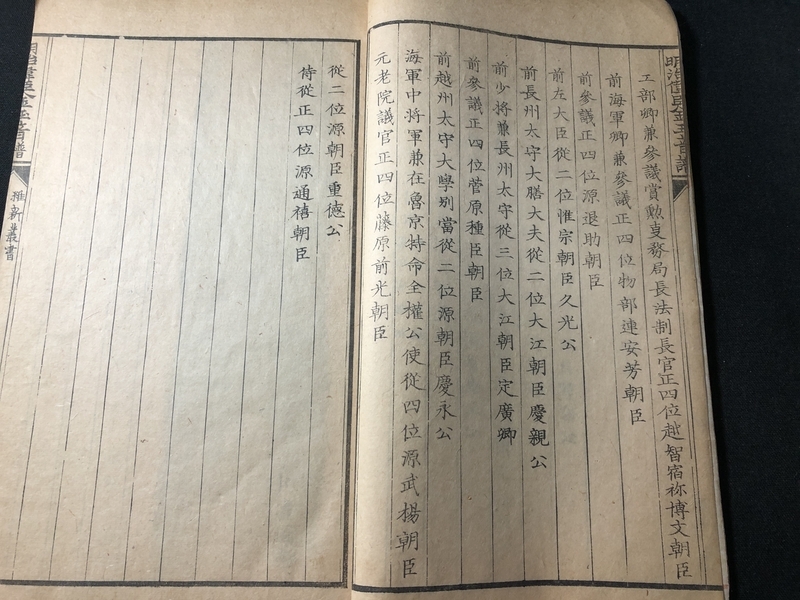 工部卿兼參議賞勲叓務局長法制長官正四位越智宿祢博文朝臣
前海軍卿兼參議正四位物部連安芳朝臣
前參議正四位源退助朝臣
前左大臣從二位惟宗朝臣久光公
前長州太守大膳大夫從二位大江朝臣慶親公
前少将兼長州太守從三位大江朝臣定廣卿
前參議正四位菅原種臣朝臣
前越州太守大學別當從二位源朝臣慶永公
海軍中将軍兼在魯京特命全權公使從四位源武楊朝臣
元老院議官正四位藤原前光朝臣
從二位源朝臣重德公
侍從正四位源通禧朝臣
維新叢書